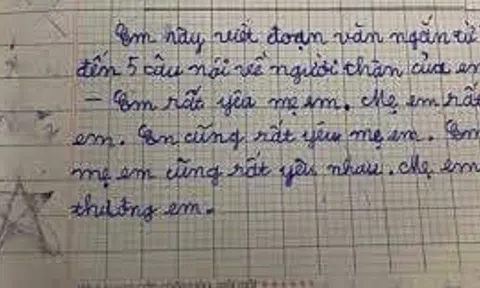 Em hãy viết đoạn văn ngắn từ
đến 5 câu nói về người thân của em
– Em rất yêu mẹ em. Mẹ em rất
em. Em cũng rất yêu mẹ em. Em
mẹ em cũng rất yêu nhau. Mẹ em
thương em.